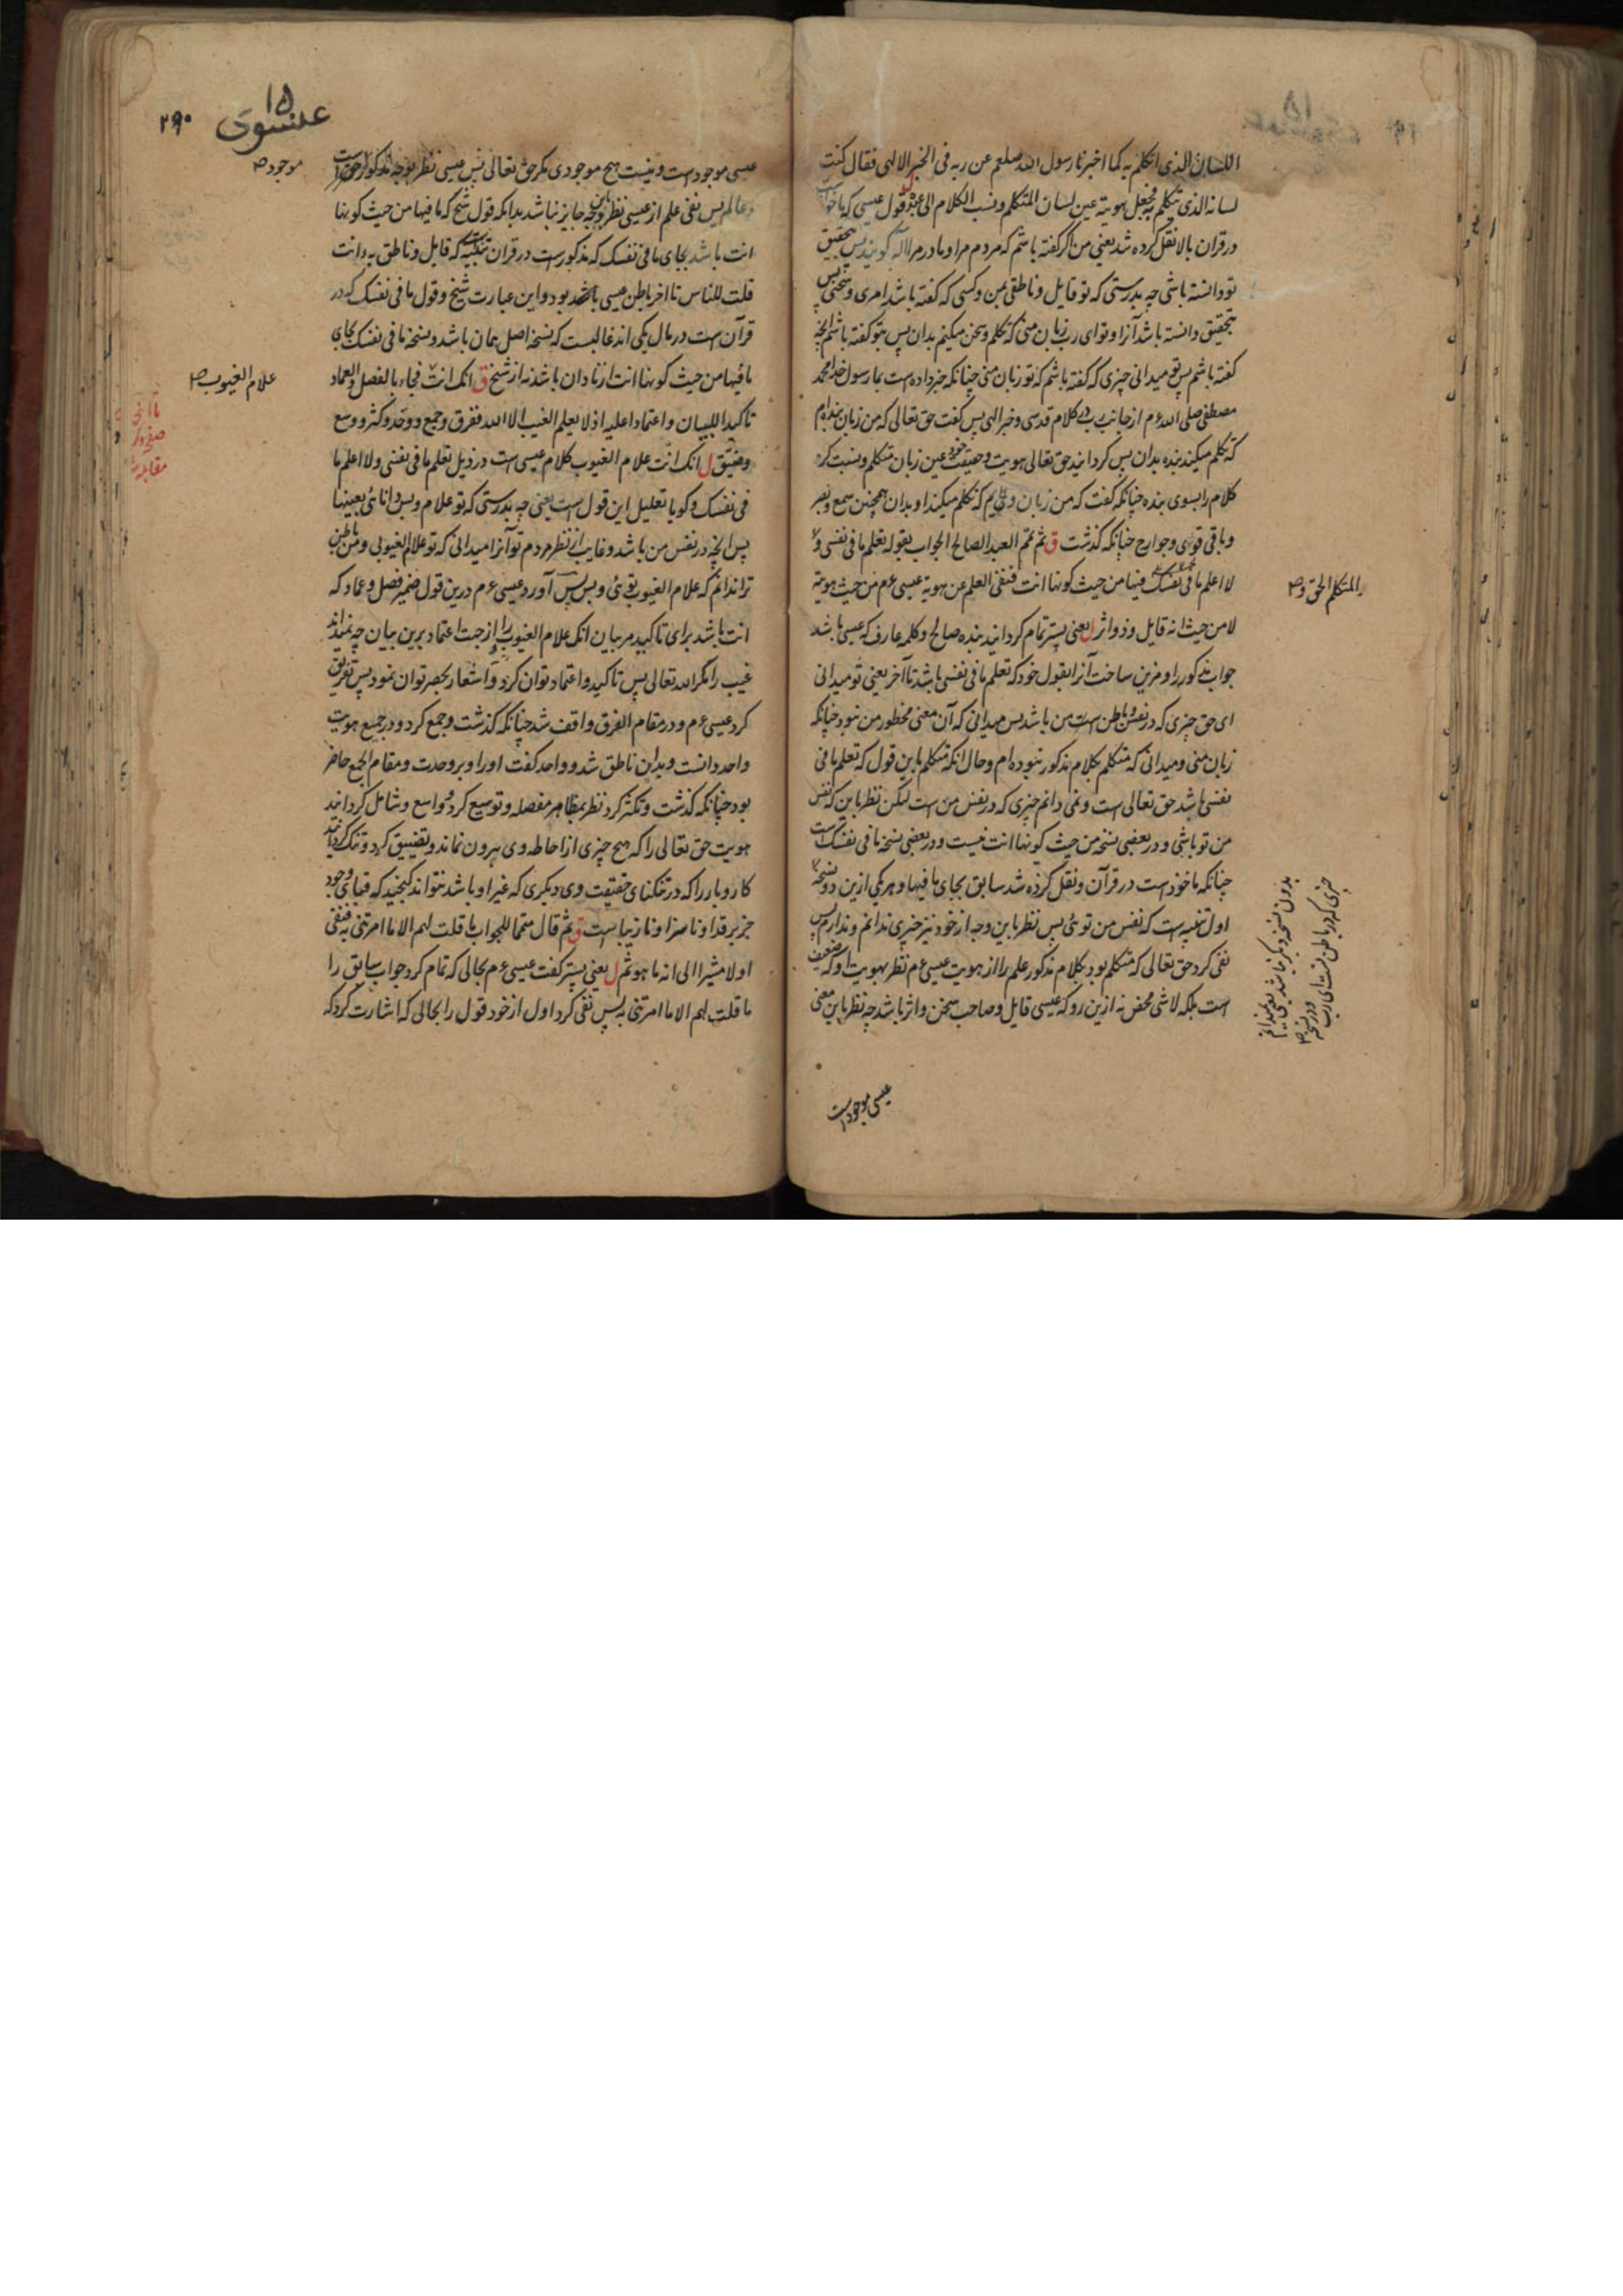 اللسان الذی اتکلم به کما اخبرنا رسول الله صلعم عن ربه فی الخبر الالهی فقال کنت
لسانه الذی یتکلم به فجعل هویته عین لسان المتکلم ونسب الکلام الی عبده قول عیسی که ماخوذ
در قران بالا نقل کرده شد یعنی من اگر گفته باشم که مردم مرا و مادر مرا اله گویند پس بتحقیق
تو دانسته باشی چه بدرستی که تو قایل و ناطقی بمن و کسی که گفته باشد امری و سخنی پس
بتحقیق دانسته باشد آنرا و تو ای رب زبان منی که تکلم و سخن میکنم بدان پس بتو گفته باشم انچه
گفته باشم پس تو میدانی چیزی که گفته باشم که تو زبان منی چنانکه خبر داده است بما رسول خدا محمد
مصطفی صلی الله ءم از جانب رب در کلام قدسی و خبر الهی پس گفت حق تعالی که من زبان بنده ام
که تکلم میکند بنده بدان پس گردانید حق تعالی هویت و حقیقت خود عین زبان متکلم و نسبت کرد
کلام را بسوی بنده چنانکه گفت که من زبان ویم که تکلم میکند او بدان همچنین سمع و بصر
و باقی قوای و جوارح چنانکه گذشت ق ثم تمم العبد الصالح الجواب بقوله تعلم ما فی نفسی و
لا اعلم ما فی نفسک فیها من حیث کونها انت فنفی العلم عن هویة عیسی ءم من حیث هویته
والمتکلم الحق و ص
لا من حیث انه قایل و ذو اثر ل یعنی پستر تمام گردانید بنده صالح و کلمه عارف که عیسی باشد
جواب مذکور را و مزین ساخت آنرا بقول خود که تعلم ما فی نفسی باشد تا آخر یعنی تو میدانی
ای حق چیزی که در نفس و باطن است من باشد پس میدانی که آن معنی مخطور من نبود چنانکه
زبان منی و میدانی که متکلم بکلام مذکور نبوده ام و حال انکه متکلم باین قول که تعلم ما فی
نفسی باشد حق تعالی است و نمی دانم چیزی که در نفس من است لیکن نظر باین که نفس
من تو باشی و در بعضی نسخه من حیث کونها انت نیست و در بعضی نسخه ما فی نفسک است
چنانکه ماخوذ است در قرآن و نقل کرده شد سابق بجای ما فیها و هر یکی ازین دو نسخه
اول تنبیه است که نفس من توئی پس نظر باین وجه از خود نیز خبری ندانم و ندارم پس
نفی کرد حق تعالی که متکلم بود بکلام مذکور علم را از هویت عیسی ءم نظر بهویت او که ضعیف
است بلکه لاشی محض نه ازین رو که عیسی قایل و صاحب سخن و اثر باشد چه نظر باین معنی
چیزی که در باطن تست ای رب
بدون نسخه دیگر نباشد یعنی نمیدانم
عیسی موجود است
۱۵
عیسوی
۲۹۰
عیسی موجود است و نیست هیچ موجودی مگر حق تعالی پس عیسی نظر بوجه مذکور حق است
موجود ص
و عالم پس نفی علم از عیسی نظر باین وجه جایز نباشد بدانکه قول شیخ که ما فیها من حیث کونها
انت باشد بجای ما فی نفسک که مذکور است در قران تنبیه است که قایل و ناطق به ءانت
قلت للناس تا اخر باطن عیسی باشد بود و این عبارت شیخ و قول ما فی نفسک که در
قرآن است در مآل یکی اند غالبست که نسخه اصل همان باشد و نسخه ما فی نفسک بجای
ما فیها من حیث کونها انت از نادان باشد نه از شیخ ق انک انت فجاء بالفصل و العماد
علام الغیوب ص
تاکیدا للبیان و اعتمادا علیه اذ لا یعلم الغیب الا الله ففرق و جمع و وحد و کثر و وسع
و ضیق ل انک انت علام الغیوب کلام عیسی است در ذیل تعلم ما فی نفسی و لا اعلم ما
فی نفسک و گویا تعلیل این قول است یعنی چه بدرستی که تو علام و پس دانائی بعینها
پس انچه در نفس من باشد و غایب از نظر مردم تو آنرا میدانی که تو علام الغیوبی و من باطن
ترا ندانم که علام الغیوب توئی و بس پس آورد عیسی ءم درین قول ضمیر فصل و عماد که
انت باشد برای تاکید مر بیان انک علام الغیوب را و از جهت اعتماد برین بیان چه نمیداند
غیب را مگر الله تعالی پس تاکید و اعتماد توان کرد و اشعار بحصر توان نمود پس تفریق
کرد عیسی ءم و در مقام الفرق واقف شد چنانکه گذشت و جمع کرد و در جمیع هویت
واحد دانست و بدان ناطق شد و واحد گفت او را و بر وحدت و مقام الجمع حاضر
بود چنانکه گذشت و تکثر کرد نظر بمظاهر مفصله و توسیع کرد و واسع و شامل گردانید
هویت حق تعالی را که هیچ چیزی از احاطه وی بیرون نماند و تضییق کرد و تنگ گردانید
کار و بار را که در تنگنای حقیقت وی دیگری که غیر او باشد نتواند گنجید که قبای وجود
جز بر قد او ناسزا و نازیبا است ق ثم قال متمما للجواب ما قلت لهم الا ما امرتنی به فنفی
اولا مشیرا الی انه ما هو ثم ل یعنی پستر گفت عیسی ءم بحالی که تمام کرد جواب سابق را
ما قلت لهم الا ما امرتنی به پس نفی کرد اول از خود قول را بحالی که اشارت کرد که